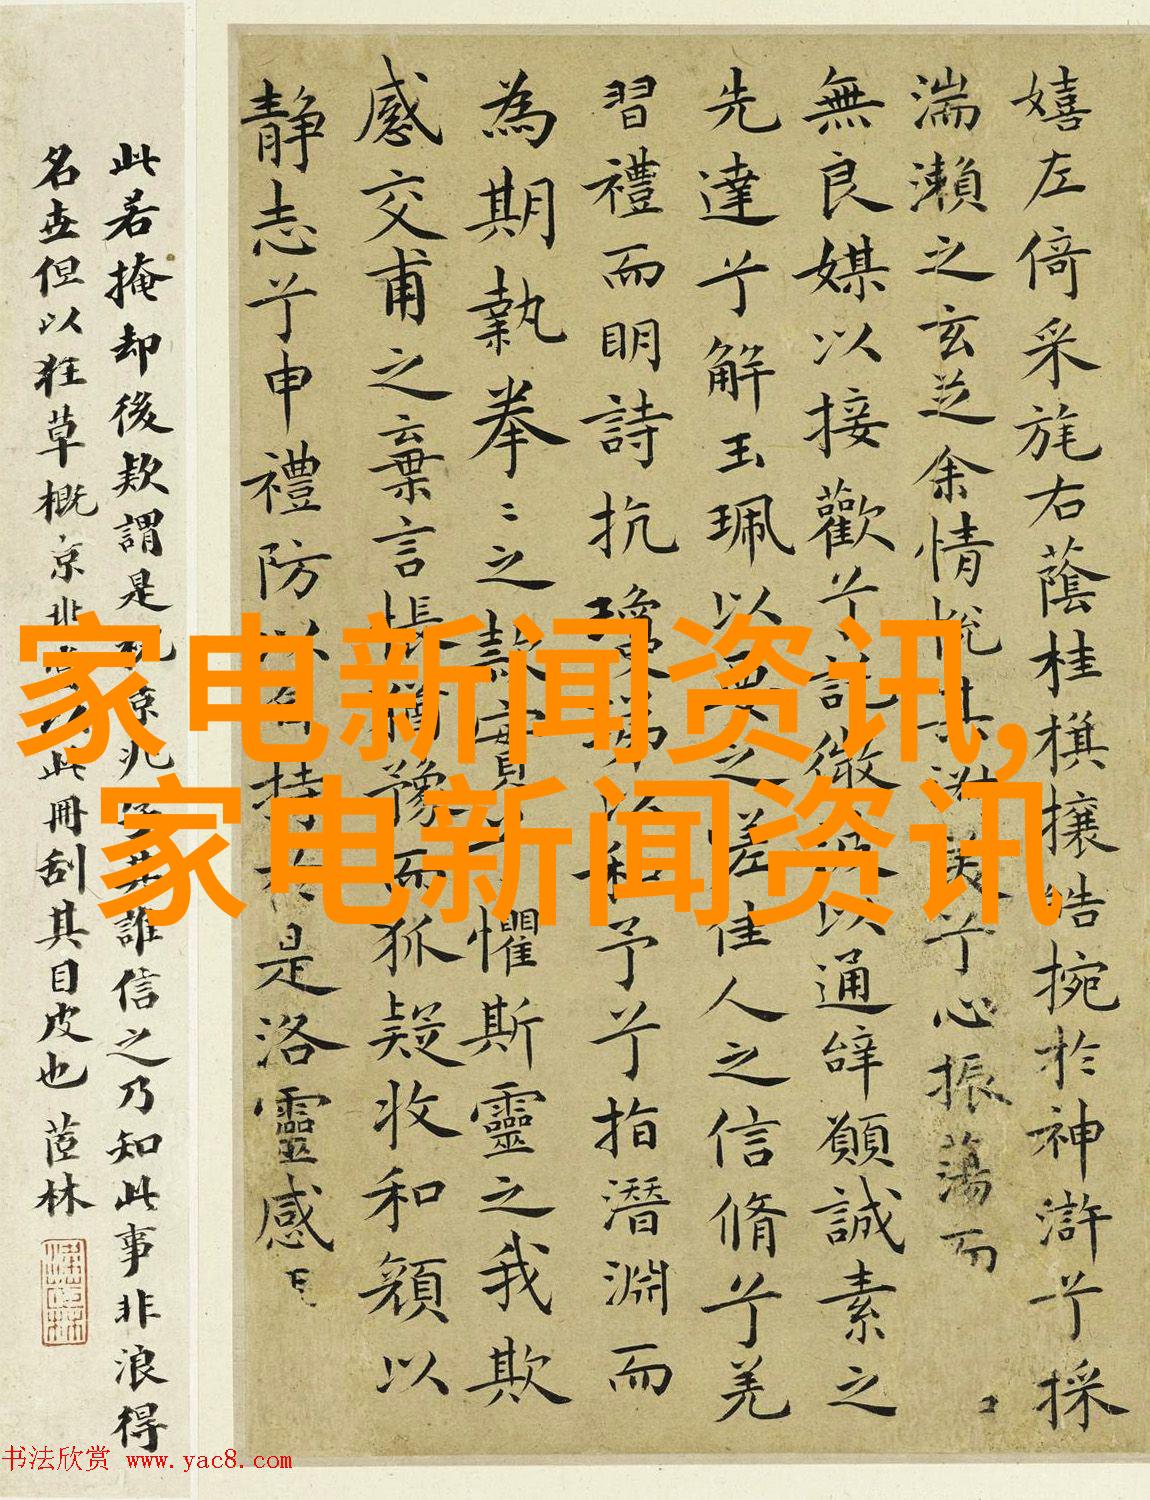 嬉左倚采旄右蔭桂旗攘皓捥於神滸兮採
湍瀨之玄芝余情悅其淑美兮心振蕩而
無良媒以接歡兮託微波以通辝願誠素之
先達兮解玉珮以要之嗟佳人之信脩兮羌
習禮而明詩抗瓊珶以和予兮指潛淵而
為期執拳〻之款實兮懼斯靈之我欺
感交甫之棄言悵猶豫而狐疑收和顏以
静志兮申禮防以自持於是洛靈感
此若掩却後欵謂是
信之乃知此事非浪得
名世但以狂草概京兆
此冊刮其目皮也 茝林
家电新闻资讯,
家电新闻资讯
书法欣赏 www.yac8.com